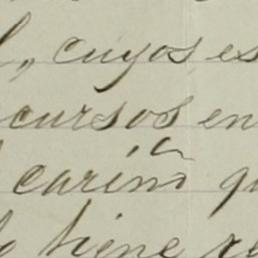 , cuyos es
cursos en
cariño q
tiene re